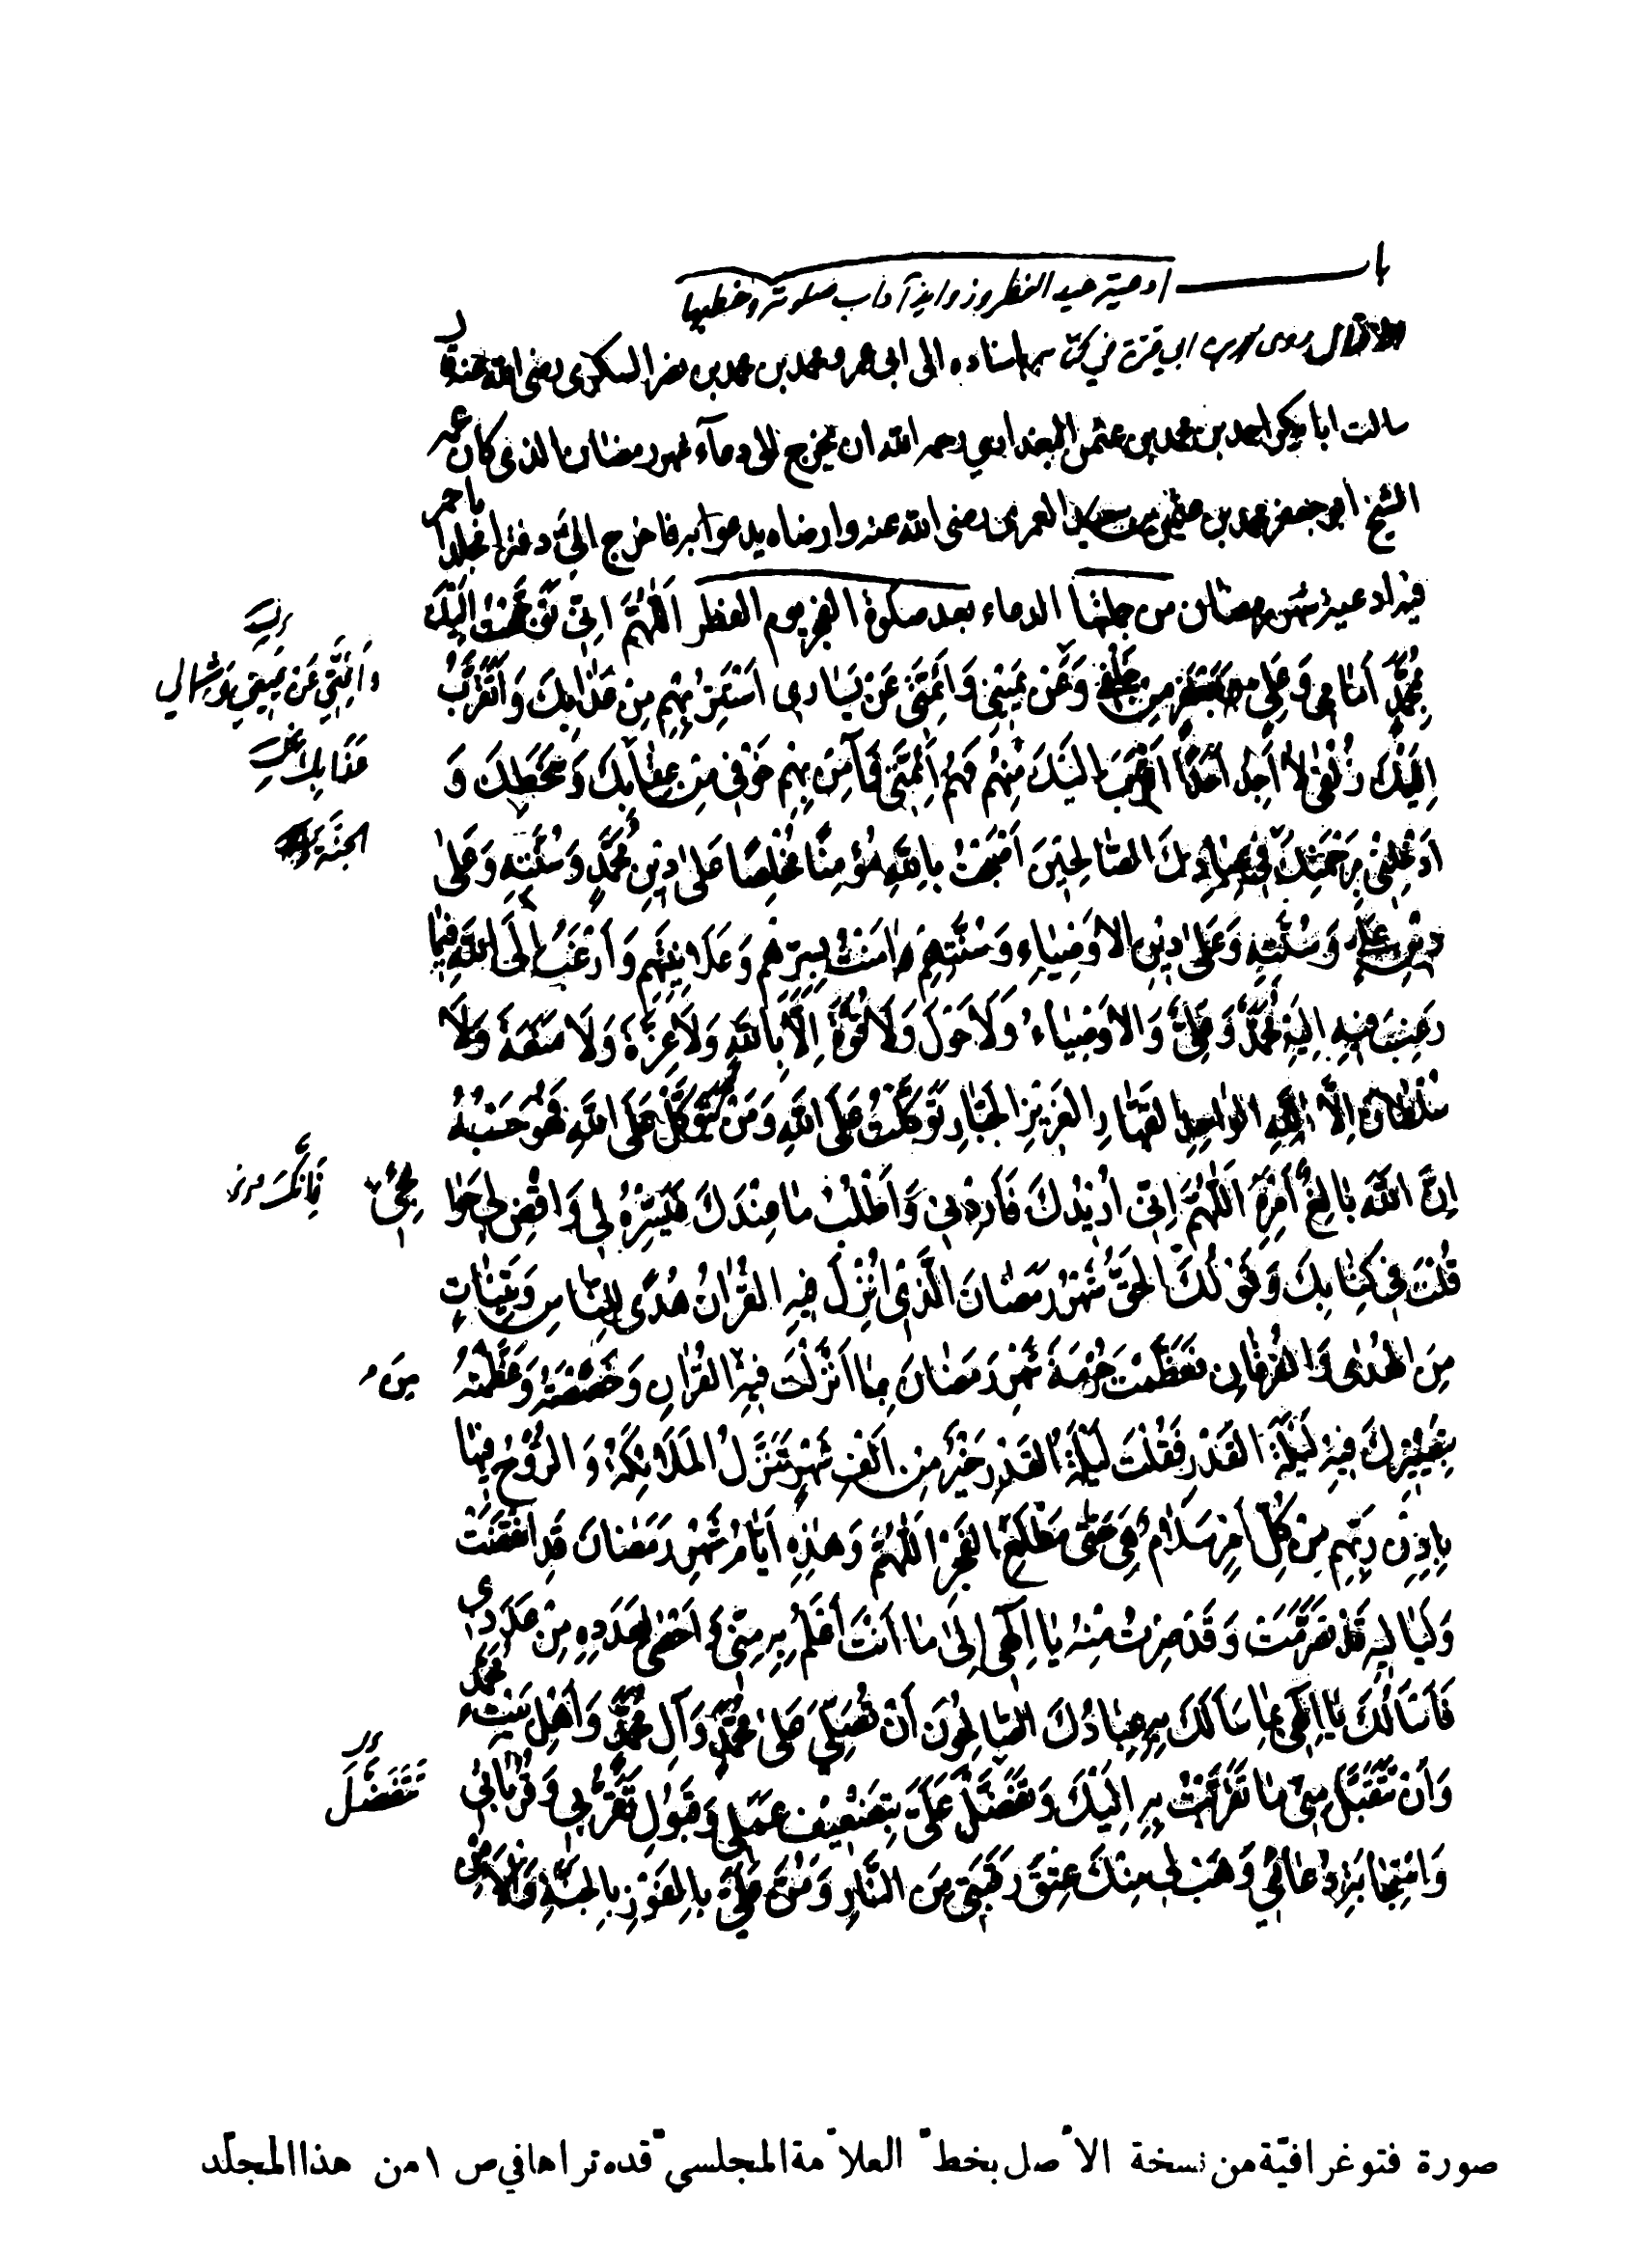 باب أدعية عيد الفطر وزوائد آداب صلوته وخطبها
الاقبال روى محمد بن أبي قرة في كتابه باسناده الى ابى عمرو محمد بن محمد بن نصر السكرى رضى الله عنه قال
سالت ابا بكر احمد بن محمد بن عثمن البغدادى رحمه الله ان يخرج الى دعآء شهر رمضان الذى كان عمه
الشيخ ابو جعفر محمد بن عثمن بن سعيد العمرى رضى الله عنه وارضاه يدعوا به فاخرج الىّ دفترا مجلدا باحمر
فيه ادعية شهر رمضان من جملتها الدعاء بعد صلوة الفجر يوم الفطر اَللّٰهُمَّ اِنّى تَوَجَّهْتُ اِلَيْكَ
بِمُحَمَّدٍ أَمَامِى وَعَلِىٍّ مِنْ خَلْفِى وَعَنْ يَمِينِى وَأَئِمَّتِى عَنْ يَسَارِى اَسْتَتِرُ بِهِمْ مِنْ عَذَابِكَ وَأَتَقَرَّبُ
اِلَيْكَ زُلْفىٰ لاٰ أَجِدُ اَحَدًا اَقْرَبَ اِلَيْكَ مِنْهُمْ فَهُمْ اَئِمَّتِى فَآمِنْ بِهِمْ خَوْفِى مِنْ عِقٰابِكَ وَسَخَطِكَ وَ
اَدْخِلْنِى بِرَحْمَتِكَ فِى عِبَادِكَ الصّٰالِحِينَ اَصْبَحْتُ بِاللهِ مُؤْمِنًا مُخْلِصًا عَلىٰ دِينِ مُحَمَّدٍ وَسُنَّتِهِ وَعَلىٰ
دِينِ عَلِىٍّ وَسُنَّتِهِ وَعَلىٰ دِينِ الْاَوْصِيٰاءِ وَسُنَّتِهِمْ اٰمَنْتُ بِسِرِّهِمْ وَعَلَانِيَتِهِمْ وَأَرْغَبُ اِلَى اللهِ فِيمَا
رَغِبَ فِيهِ اِلَيْهِ مُحَمَّدٌ وَعَلِىٌّ وَالْاَوْصِيٰاءُ وَلَا حَوْلَ وَلَا قُوَّةَ اِلَّا بِاللهِ وَلَا عِزَّةَ وَلَا مَنَعَةَ وَلَا
سُلْطَانَ اِلَّا لِلّٰهِ الْوٰاحِدِ الْقَهّٰارِ الْعَزِيزِ الْجَبّٰارِ تَوَكَّلْتُ عَلَى اللهِ وَمَنْ يَتَوَكَّلْ عَلَى اللهِ فَهُوَ حَسْبُهُ
اِنَّ اللهَ بَالِغُ أَمْرِهِ اَللّٰهُمَّ اِنّى اُرِيدُكَ فَأَرِدْنِى وَأَطْلُبُ مٰا عِنْدَكَ فَيَسِّرْهُ لِى وَاقْضِ لِى حَوَائِجِى
قُلْتَ فِى كِتٰابِكَ وَقَوْلُكَ الْحَقُّ شَهْرُ رَمَضَانَ الَّذِى اُنْزِلَ فِيهِ الْقُرْآنُ هُدًى لِلنّٰاسِ وَبَيِّنٰاتٍ
مِنَ الْهُدىٰ وَالْفُرْقَانِ فَعَظَّمْتَ حُرْمَةَ شَهْرِ رَمَضَانَ بِمٰا اَنْزَلْتَ فِيهِ مِنَ الْقُرْآنِ وَخَصَصْتَهُ وَعَظَّمْتَهُ
بِتَصْيِيرِكَ فِيهِ لَيْلَةَ الْقَدْرِ فَقُلْتَ لَيْلَةُ الْقَدْرِ خَيْرٌ مِنْ اَلْفِ شَهْرٍ تَنَزَّلُ الْمَلَائِكَةُ وَالرُّوحُ فِيهٰا
بِإِذْنِ رَبِّهِمْ مِنْ كُلِّ أَمْرٍ سَلَامٌ هِىَ حَتّىٰ مَطْلَعِ الْفَجْرِ اَللّٰهُمَّ وَهٰذِهِ اَيَّامُ شَهْرِ رَمَضَانَ قَدِ انْقَضَتْ
وَلَيٰالِيهِ قَدْ تَصَرَّمَتْ وَقَدْ صِرْتُ مِنْهُ يٰا اِلٰهِى اِلىٰ مٰا اَنْتَ أَعْلَمُ بِهِ مِنّى وَاَحْصىٰ لِعَدَدِهِ مِنْ عَدَدِى
فَأَسْأَلُكَ يٰا اِلٰهِى بِمٰا سَأَلَكَ بِهِ عِبَادُكَ الصّٰالِحُونَ أَنْ تُصَلِّىَ عَلىٰ مُحَمَّدٍ وَآلِ مُحَمَّدٍ وَأَهْلِ بَيْتِ مُحَمَّدٍ
وَأَنْ تَتَقَبَّلَ مِنّى مٰا تَقَرَّبْتُ بِهِ اِلَيْكَ وَتَفَضَّلَ عَلَىَّ بِتَضْعِيفِ عَمَلِى وَقَبُولِ تَقَرُّبِى وَقُرُبَاتِى
وَاسْتِجَابَةِ دُعَائِى وَهَبْ لِى مِنْكَ عِتْقَ رَقَبَتِى مِنَ النَّارِ وَمُنَّ عَلَىَّ بِالْفَوْزِ بِالْجَنَّةِ وَالْاَمْنِ
وَأَئِمَّتِى عَنْ يَمِينِى وَشِمَالِى
عَذَابِكَ
الجَنَّة
فَإِنَّكَ
مِنَ
تَتَفَضَّلَ
صورة فتوغرافيّة من نسخة الاٴصل بخطّ العلاّمة المجلسي قدّه تراها في ص ١ من هذا المجلّد